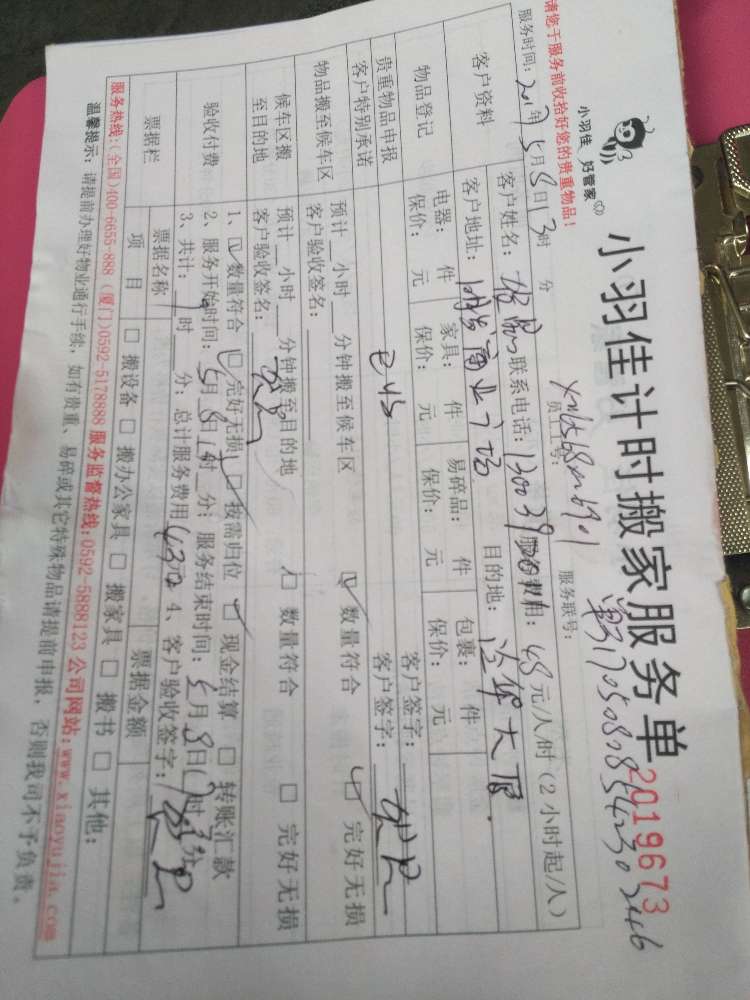 请您于服务前收拾好您的贵重物品!
小羽佳 好管家
小羽佳计时搬家服务单
2019673
员工工号:
服务联号:
服务时间: 2017年5月8日13时 分
服务费用: 48元/人/时(2小时起/人)
客户资料
客户姓名:
联系电话:
客户地址:
目的地:
物品登记
电器: 件 家具: 件 易碎品: 件 包裹: 件
保价: 元 保价: 元 保价: 元 保价: 元
贵重物品申报
客户签字:
客户特别承诺
客户签字:
物品搬至候车区
预计 小时 分钟搬至候车区
数量符合 完好无损
客户验收签名:
候车区搬至目的地
预计 小时 分钟搬至目的地
数量符合 完好无损
客户验收签名:
验收付费
1、 数量符合 完好无损 按需归位 现金结算 转账汇款
2、服务开始时间: 5月8日 时 分; 服务结束时间: 5月8日 时 分
3、共计: 时 分; 总计服务费用 4、客户验收签字:
票据栏
票据名称 票据金额
项目 搬设备 搬办公家具 搬家具 搬书 其他:
服务热线:(全国)400-6655-888 (厦门)0592-5178888 服务监督热线:0592-5888123 公司网站:www.xiaoyujia.com
温馨提示: 请提前办理好物业通行手续,如有贵重、易碎或其它特殊物品请提前申报,否则我司不予负责。